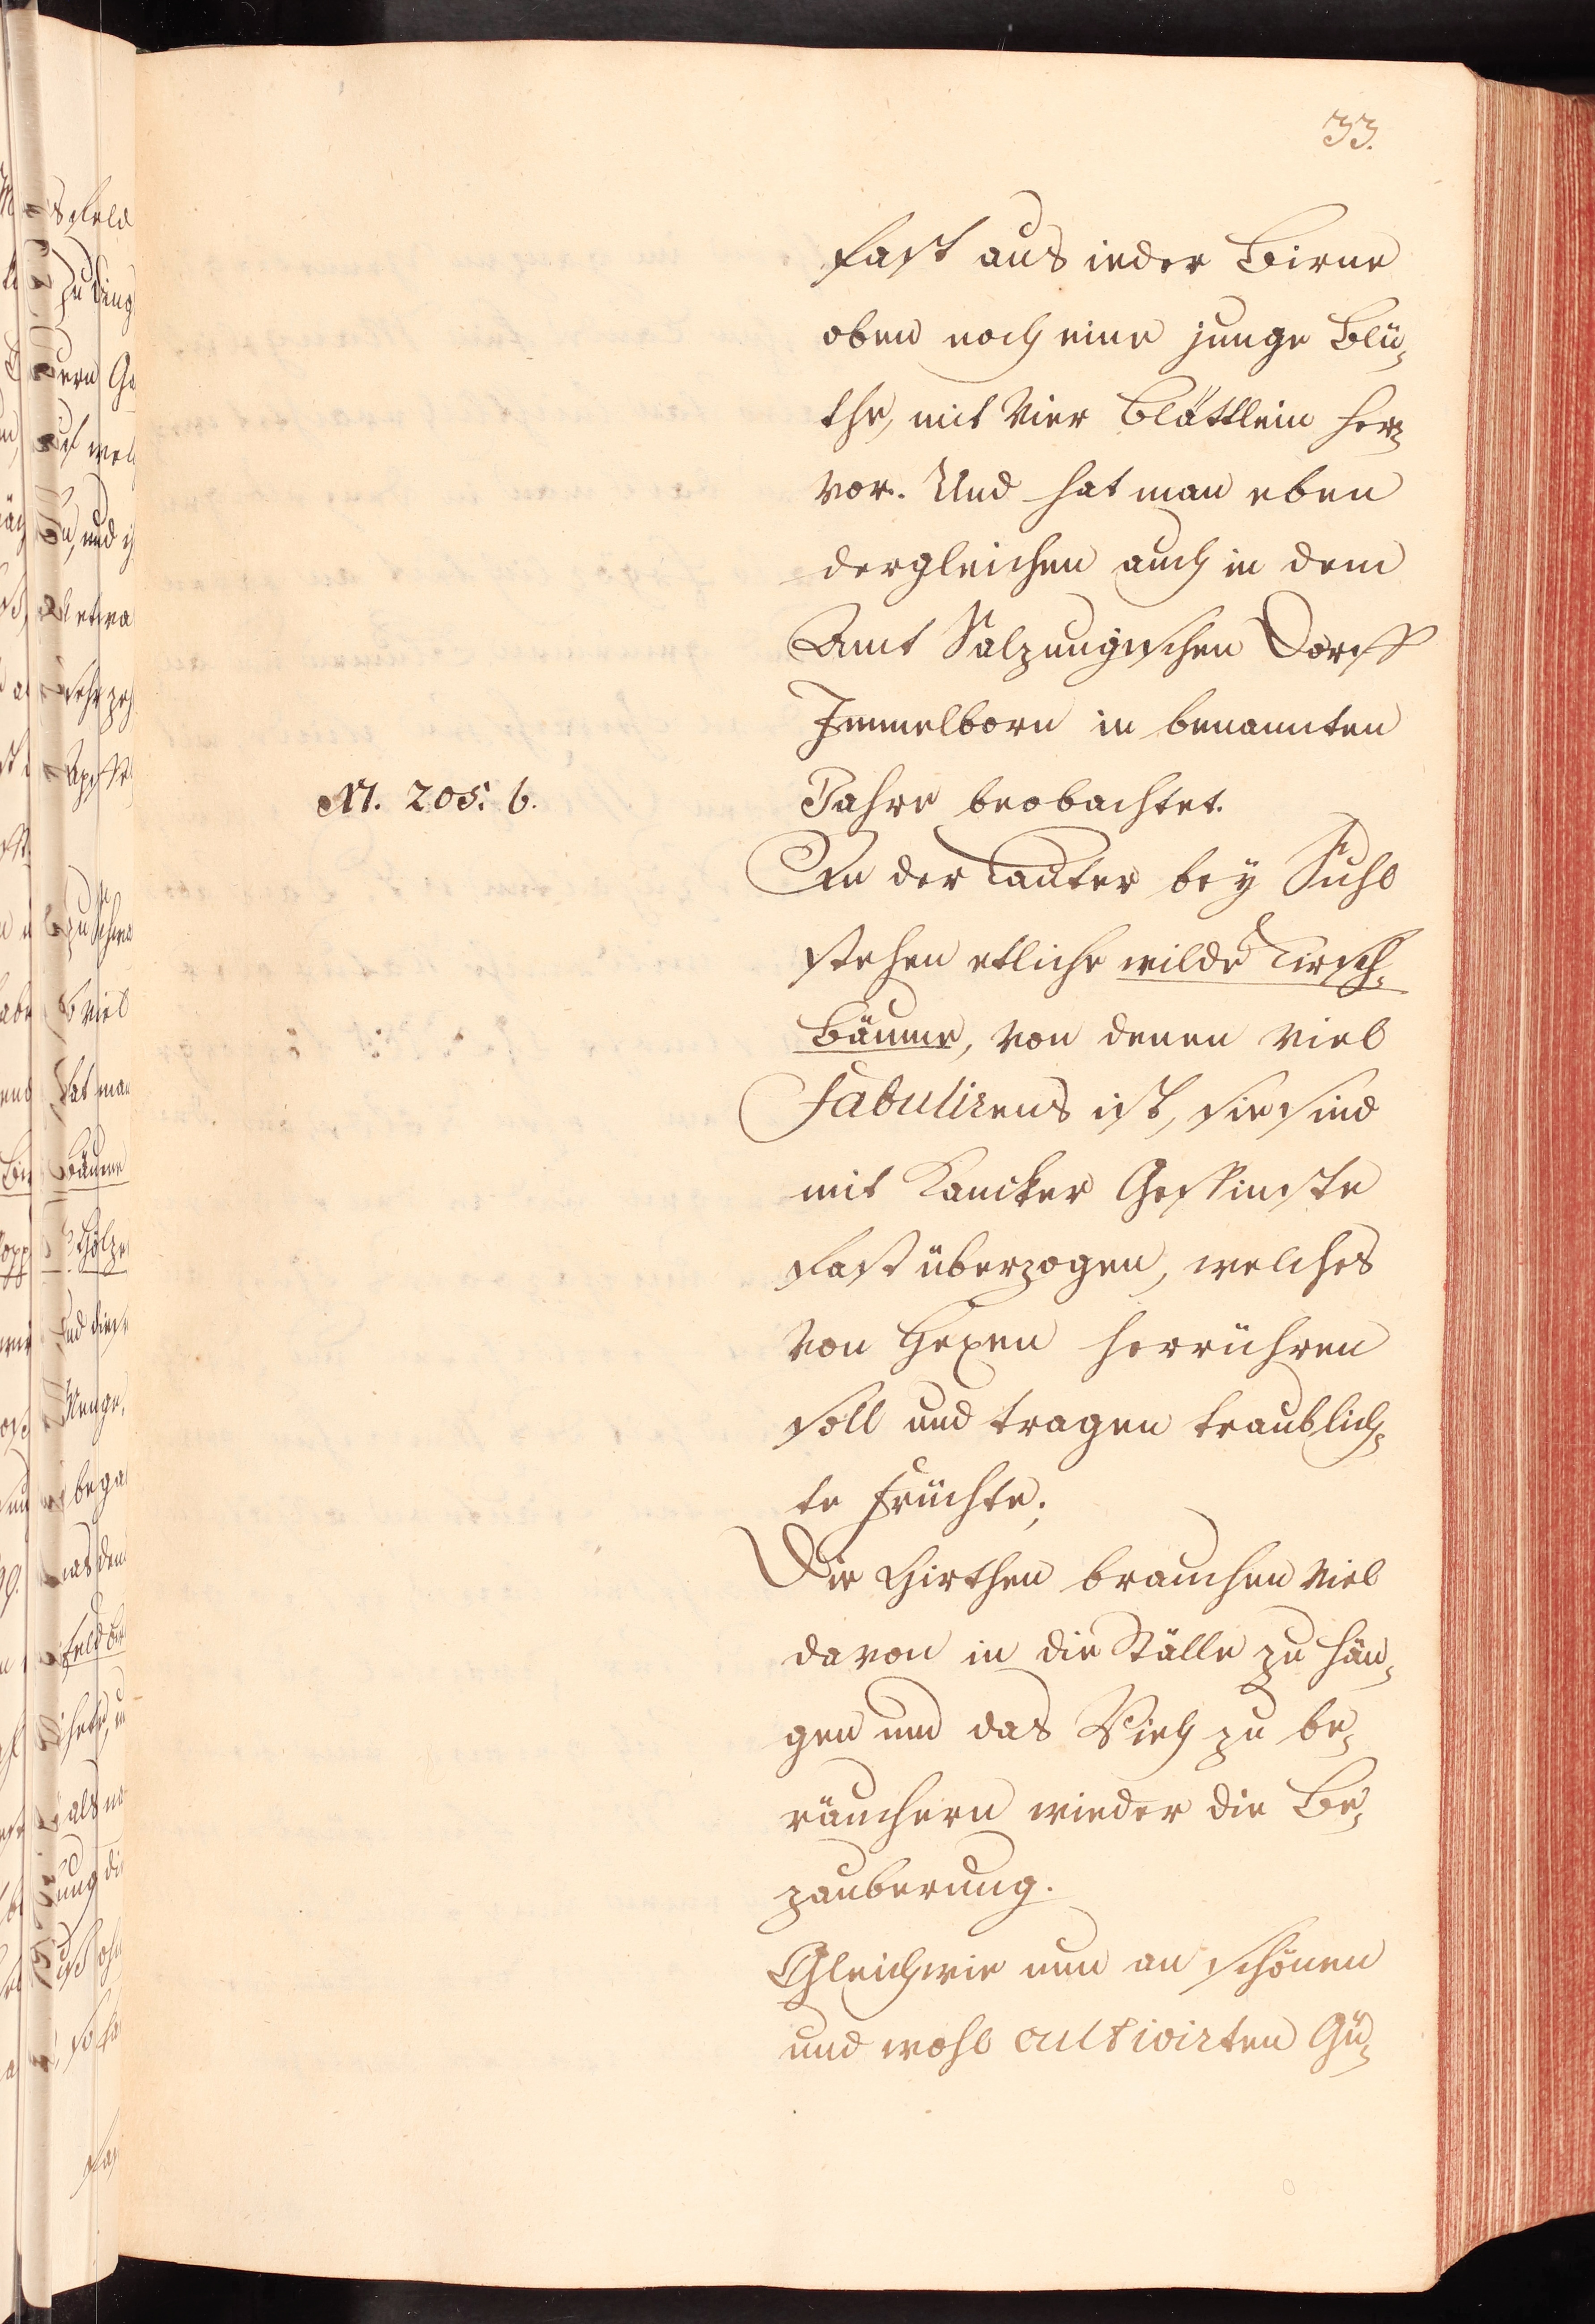 33.
fast aus ieder Birne
oben noch eine junge Blü-
the, mit vier Blättlein her-
vor. Und hat man eben
dergleichen auch in dem
Amt Salzungischen Dorff
Immelborn in benannten
Jahre beobachtet.
M. 205. b.
In der Lauter bey Suhl
stehen etliche wilde Kirsch-
Bäume, von denen viel
Fabulirens ist, sie sind
mit Kancker Gespinste
fast überzogen, welches
von Hexen herrühren
soll und tragen traublich-
te Früchte;
Die Hirthen brauchen viel
davon in die Ställe zu hän-
gen und das Vieh zu be-
räuchern wieder die Be-
zauberung.
Gleichwie nun an schönen
und wohl cultivirten Gü-